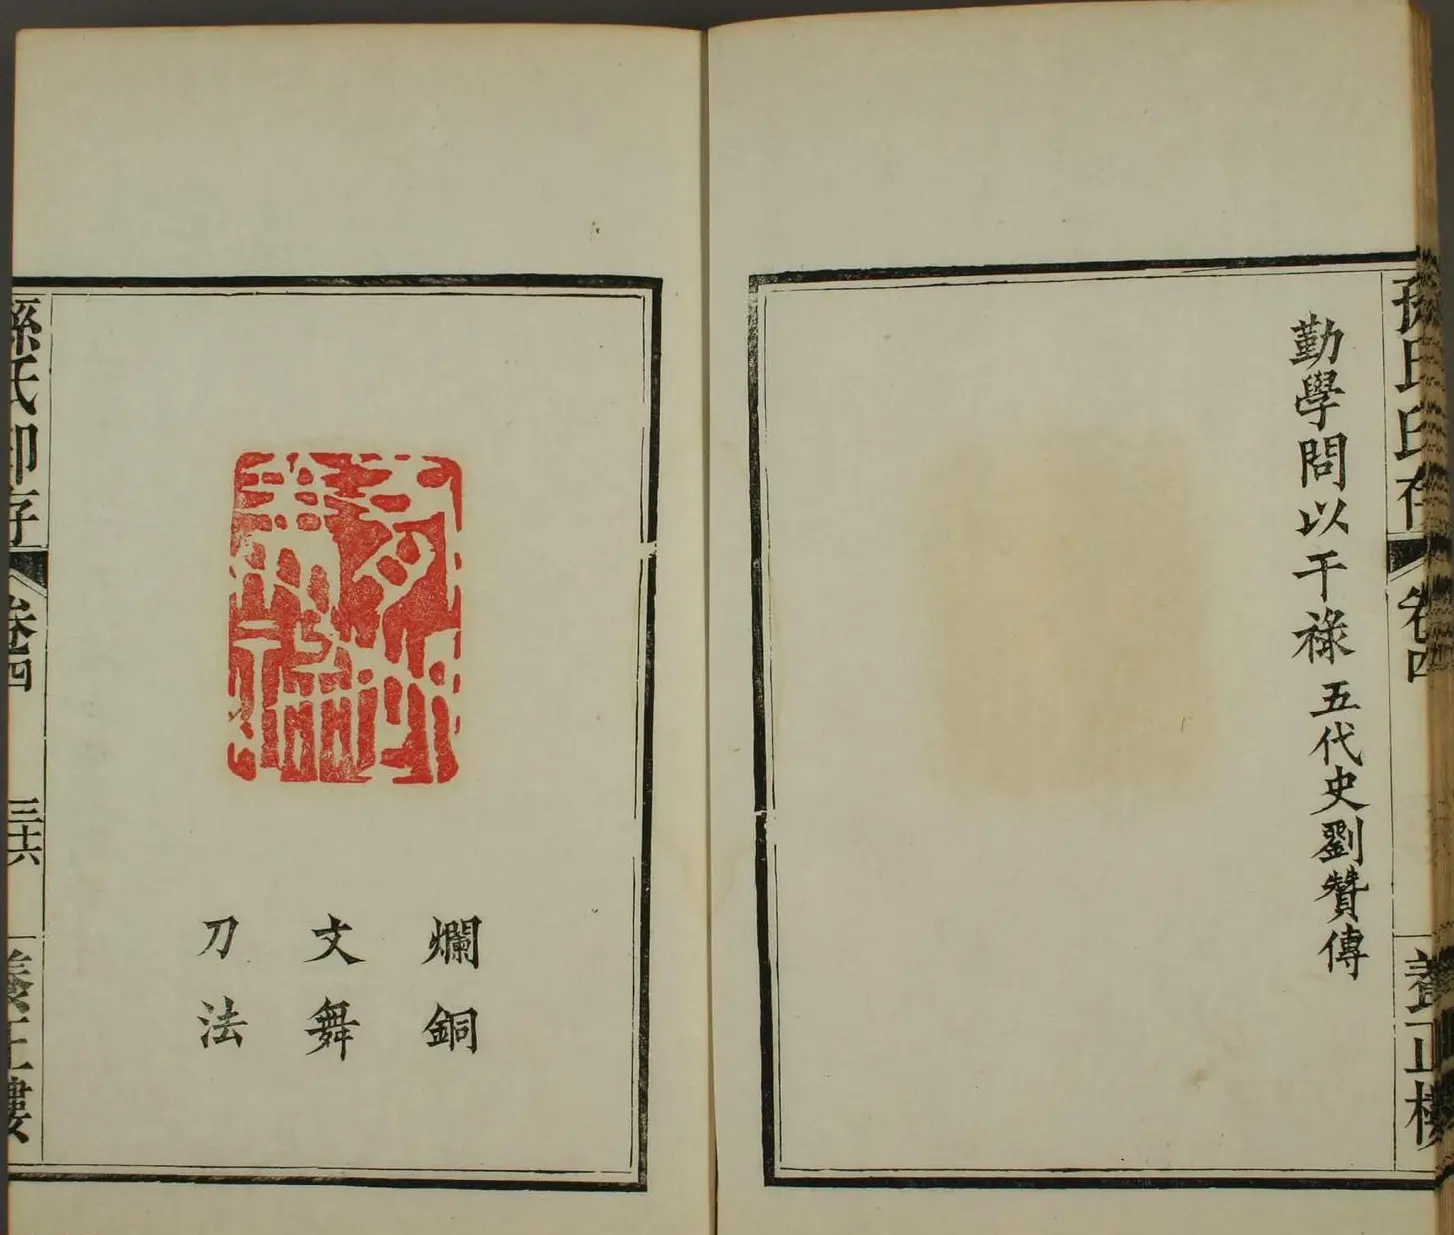 孫氏印存
卷四
養正樓
勤學問以干祿 五代史劉贊傳
爛銅
文舞
刀法
孫氏印存
卷四
三十六
養正樓